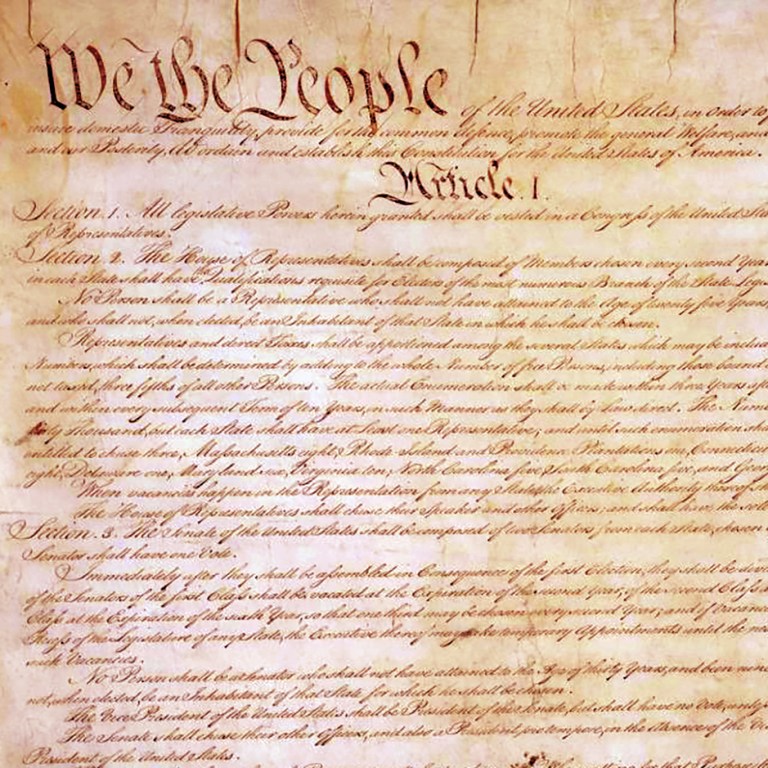 We the People of the United States, in Order to
insure domestic Tranquility, provide for the common defence, promote the general Welfare, and
and our Posterity, do ordain and establish this Constitution for the United States of America.
Article. I.
Section. 1. All legislative Powers herein granted shall be vested in a Congress of the United
of Representatives.
Section. 2. The House of Representatives shall be composed of Members chosen every second
in each State shall have Qualifications requisite for Electors of the most numerous Branch of the State
No Person shall be a Representative who shall not have attained to the Age of twenty five Years,
and who shall not, when elected, be an Inhabitant of that State in which he shall be chosen.
Representatives and direct Taxes shall be apportioned among the several States which may be
Numbers, which shall be determined by adding to the whole Number of free Persons, including those bound
not taxed, three fifths of all other Persons. The actual Enumeration shall be made within three Years
and within every subsequent Term of ten Years, in such Manner as they shall by Law direct. The
thirty Thousand, but each State shall have at Least one Representative; and until such enumeration
entitled to chuse three, Massachusetts eight, Rhode Island and Providence Plantations one, Connecticut
eight, Delaware one, Maryland six, Virginia ten, North Carolina five, South Carolina five, and
When vacancies happen in the Representation from any State, the Executive Authority thereof
The House of Representatives shall chuse their Speaker and other Officers; and shall have the
Section. 3. The Senate of the United States shall be composed of two Senators from each State, chosen
Senator shall have one Vote.
Immediately after they shall be assembled in Consequence of the first Election, they shall be
of the Senators of the first Class shall be vacated at the Expiration of the second Year, of the second Class
Class at the Expiration of the sixth Year, so that one third may be chosen every second Year; and if
Recess of the Legislature of any State, the Executive thereof may make temporary Appointments until the
such Vacancies.
No Person shall be a Senator who shall not have attained to the Age of thirty Years, and been
not, when elected, be an Inhabitant of that State for which he shall be chosen.
The Vice President of the United States shall be President of the Senate, but shall have no Vote, unless
The Senate shall chuse their other Officers, and also a President pro tempore, in the Absence of the
President of the United States.